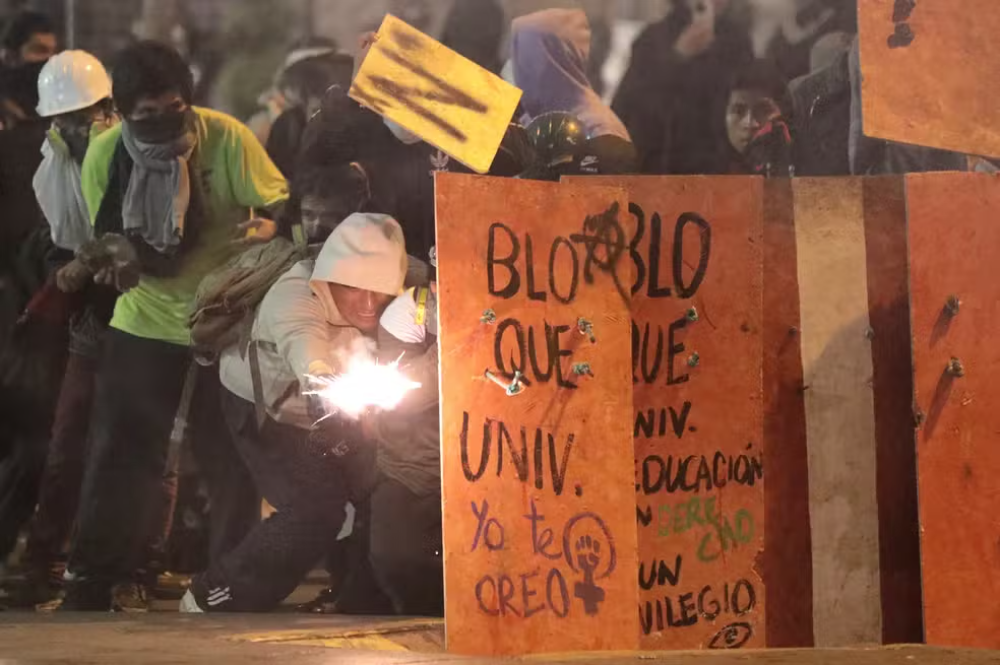 BLO
QUE
UNIV.
Yo te
CREO
BLO
QUE
UNIV.
EDUCACIÓN
UN DERECHO
UN
PRIVILEGIO